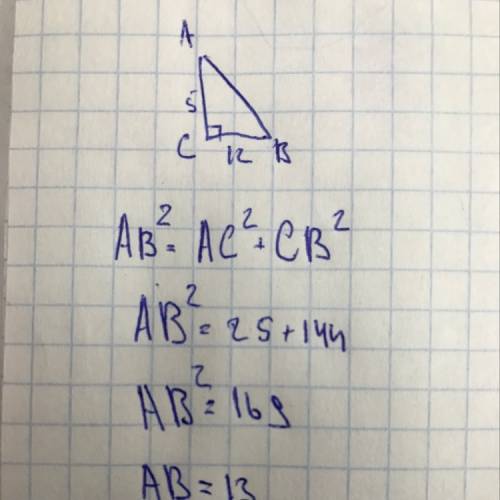 A
5
C 12 B
AB² = AC² + CB²
AB² = 25 + 144
AB² = 169
AB = 13